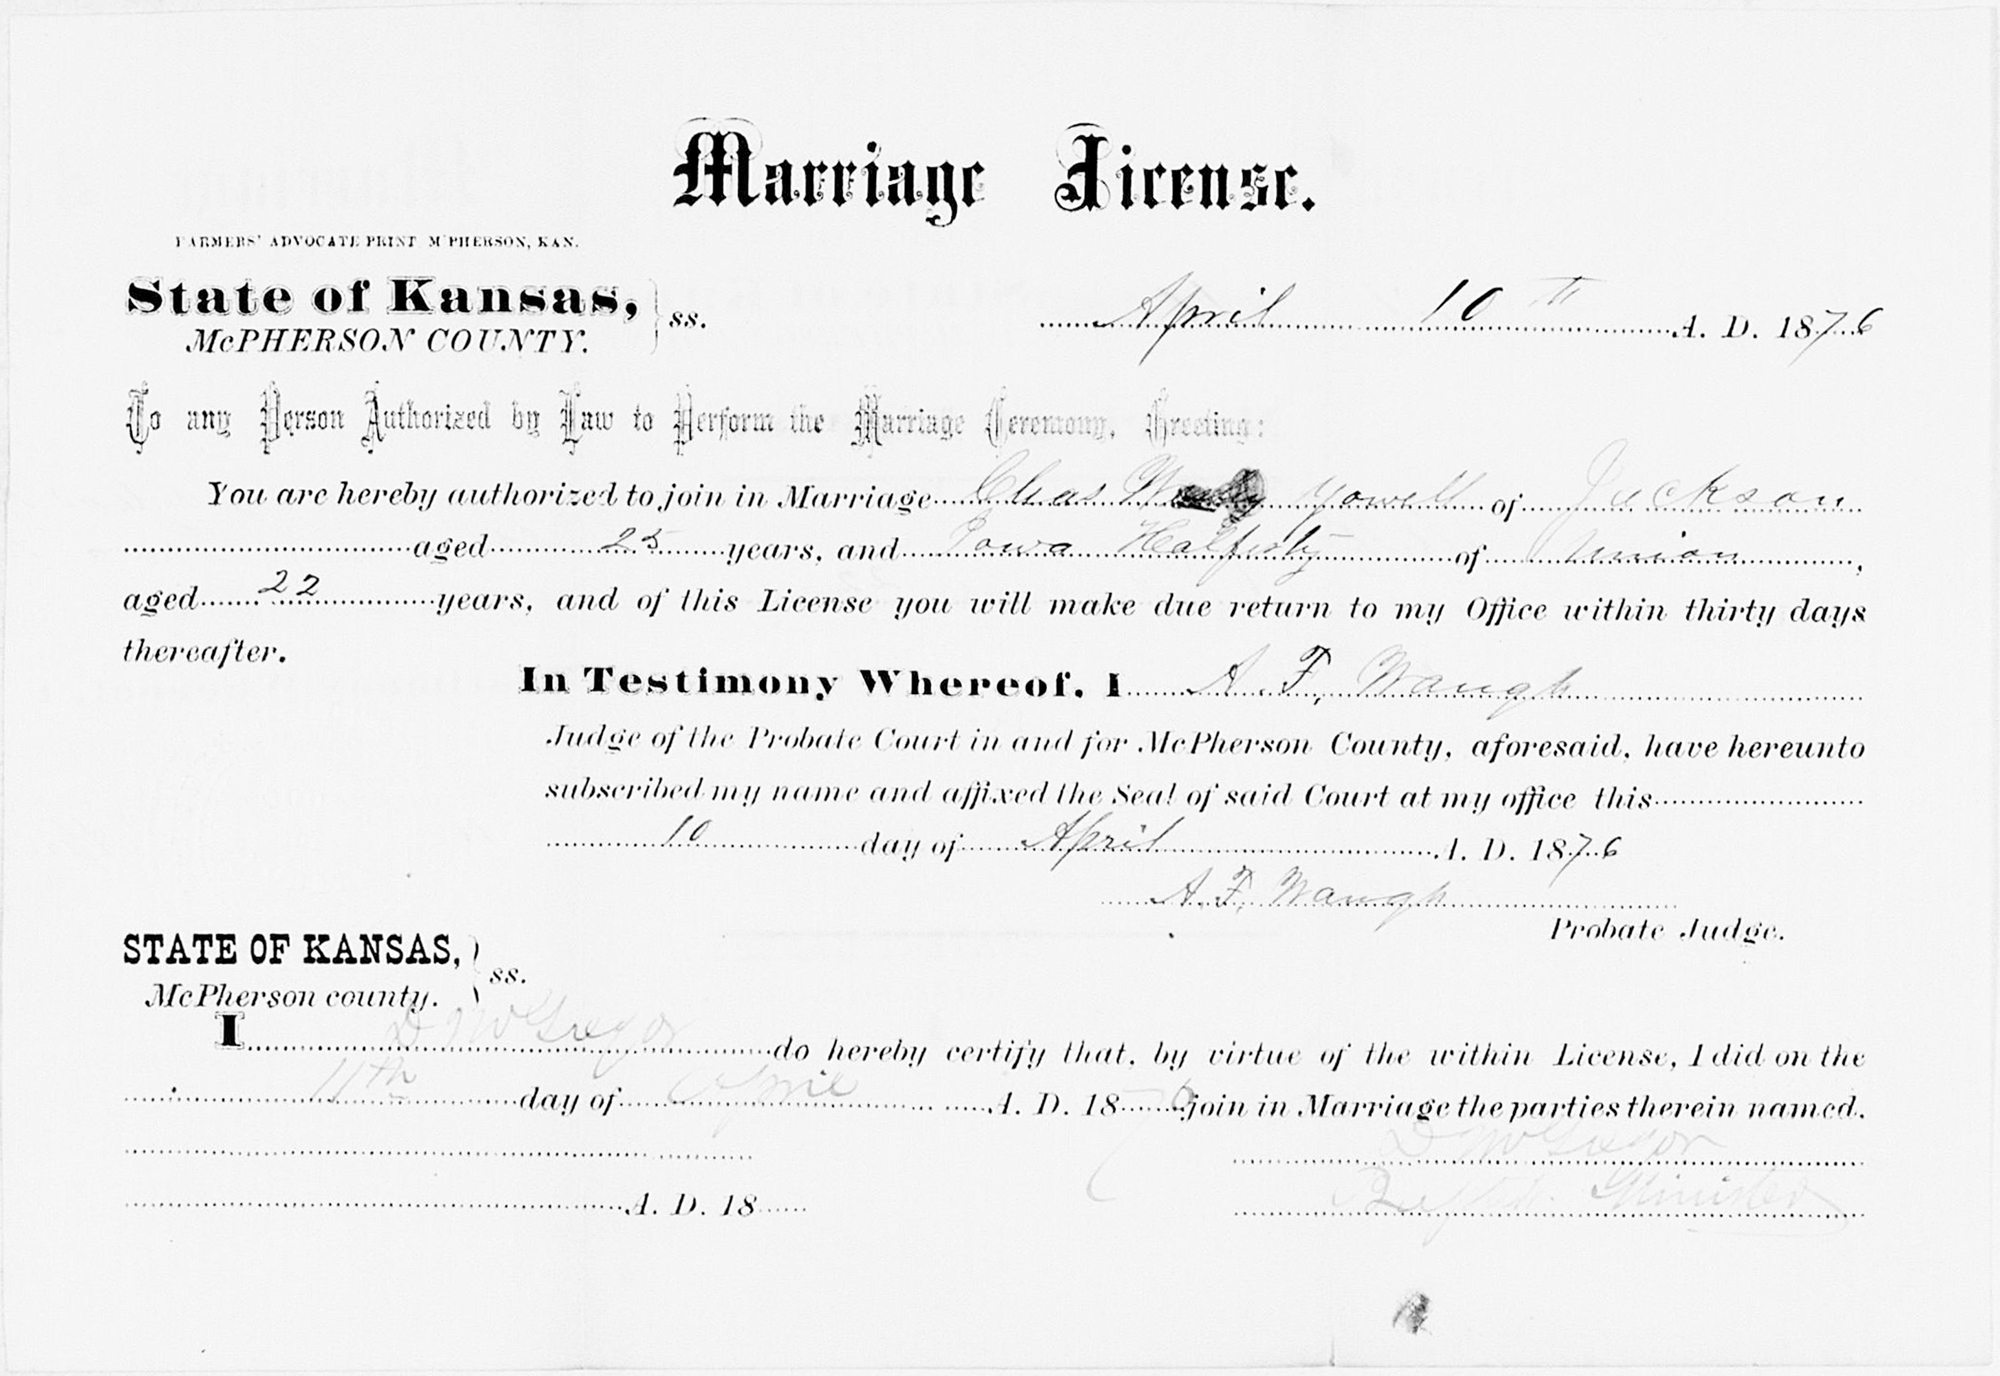 Marriage License.
FARMERS' ADVOCATE PRINT M'PHERSON, KAN.
State of Kansas, } ss.
McPHERSON COUNTY.
April 10th A. D. 1876
To any Person Authorized by Law to Perform the Marriage Ceremony, Greeting:
You are hereby authorized to join in Marriage Chas Yowell of Jackson
aged 25 years, and Iowa Halferty of Union,
aged 22 years, and of this License you will make due return to my Office within thirty days
thereafter.
In Testimony Whereof, I A. F. Waugh
Judge of the Probate Court in and for McPherson County, aforesaid, have hereunto
subscribed my name and affixed the Seal of said Court at my office this
10 day of April A. D. 1876
A. F. Waugh
Probate Judge.
STATE OF KANSAS, } ss.
McPherson county.
I D McGregor do hereby certify that, by virtue of the within License, I did on the
11th day of April A. D. 1876 join in Marriage the parties therein named.
D McGregor
Minister
A. D. 18